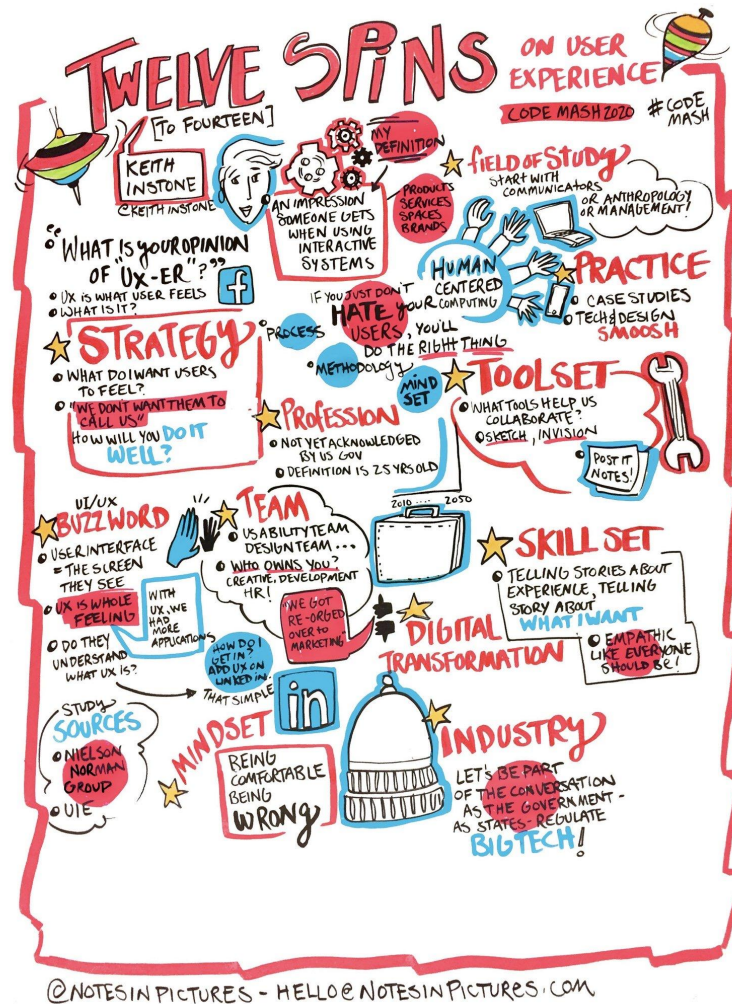 TWELVE SPINS
ON USER
EXPERIENCE
[TO FOURTEEN]
CODE MASH 2020
#CODE
MASH
KEITH
INSTONE
@KEITHINSTONE
MY
DEFINITION
AN IMPRESSION
SOMEONE GETS
WHEN USING
INTERACTIVE
SYSTEMS
PRODUCTS
SERVICES
SPACES
BRANDS
FIELD OF STUDY
START WITH
COMMUNICATORS
OR ANTHROPOLOGY
OR MANAGEMENT!
"WHAT IS YOUR OPINION
OF "UX-ER"?"
UX IS WHAT USER FEELS
WHAT IS IT?
f
HUMAN
CENTERED
COMPUTING
PRACTICE
CASE STUDIES
TECH & DESIGN
SMOOSH
IF YOU JUST DON'T
HATE YOUR
USERS, YOU'LL
DO THE RIGHT THING
STRATEGY
WHAT DO I WANT USERS
TO FEEL?
"WE DON'T WANT THEM TO
CALL US"
HOW WILL YOU DO IT
WELL?
PROCESS
METHODOLOGY
MIND
SET
PROFESSION
NOT YET ACKNOWLEDGED
BY US GOV
DEFINITION IS 25 YRS OLD
2010 .... 2050
TOOLSET
WHAT TOOLS HELP US
COLLABORATE?
SKETCH, INVISION
POST IT
NOTES!
UI/UX
BUZZWORD
USER INTERFACE
= THE SCREEN
THEY SEE
UX IS WHOLE
FEELING
DO THEY
UNDERSTAND
WHAT UX IS?
WITH
UX, WE
HAD
MORE
APPLICATIONS
TEAM
USABILITY TEAM
DESIGN TEAM...
WHO OWNS YOU?
CREATIVE, DEVELOPMENT
HR!
"WE GOT
RE-ORGED
OVER TO
MARKETING"
HOW DO I
GET IN?
ADD UX ON
LINKED IN.
THAT SIMPLE
in
DIGITAL
TRANSFORMATION
SKILL SET
TELLING STORIES ABOUT
EXPERIENCE, TELLING
STORY ABOUT
WHAT I WANT
EMPATHIC
LIKE EVERYONE
SHOULD BE!
STUDY
SOURCES
NIELSON
NORMAN
GROUP
UIE
MINDSET
BEING
COMFORTABLE
BEING
WRONG
INDUSTRY
LET'S BE PART
OF THE CONVERSATION
AS THE GOVERNMENT -
AS STATES - REGULATE
BIG TECH!
@NOTESINPICTURES - HELLO@NOTESINPICTURES.COM